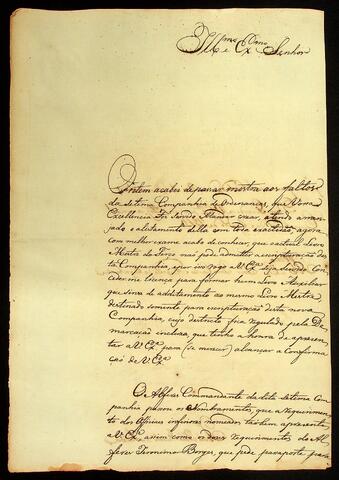 Illmo. e Exmo. Senhor
Ontem acabei de passar mostra aos faltos
da setima Companhia de Ordenanças, que Vossa
Excellencia Foi Servido Mandar crear, e tendo
e alistamento della com toda exactidão, agora
com melhor exame acabo de conhecer, que o actual Livro
Mestre do Terço não pode admittir a
Companhia, e por isso rogo a V. Exa. seja servido Con
ceder-me licença para formar hum Livro Auxiliar
que sirva de additamento ao mesmo Livro Mestre,
destinado somente para desta nova
Companhia, cujo destricto foi regulado pela De
marcação incluza, que tenho a honra de aprezen
tar a V. Exa. para (se merecer) alcançar a Confirma
ção de V. Exa.
O Alferes Commandante da dita setima Com
panhia os Nombramentos, que a requerimen
to dos Officiaes inferiores nomeados tambem aprezenta
a V. Exa. assim como os dous requerimentos do Al
feres Jeronimo Borges, que pede passaporte para